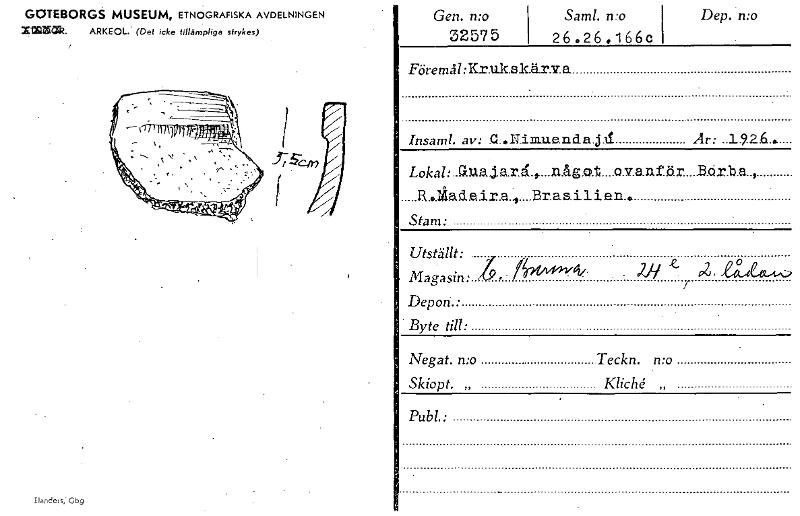 GÖTEBORGS MUSEUM, ETNOGRAFISKA AVDELNINGEN
ARKEOL. (Det icke tillämpliga strykes)
5,5cm
Elanders, Gbg
Gen. n:o Saml. n:o Dep. n:o
32575 26.26.166c
Föremål: Krukskärva
Insaml. av: C.Nimuendajú År: 1926.
Lokal: Guajará, något ovanför Borba,
R.Madeira, Brasilien.
Stam:
Utställt:
Magasin: 24 e, 2. lådan
Depon.:
Byte till:
Negat. n:o Teckn. n:o
Skiopt. „ Kliché „
Publ.: